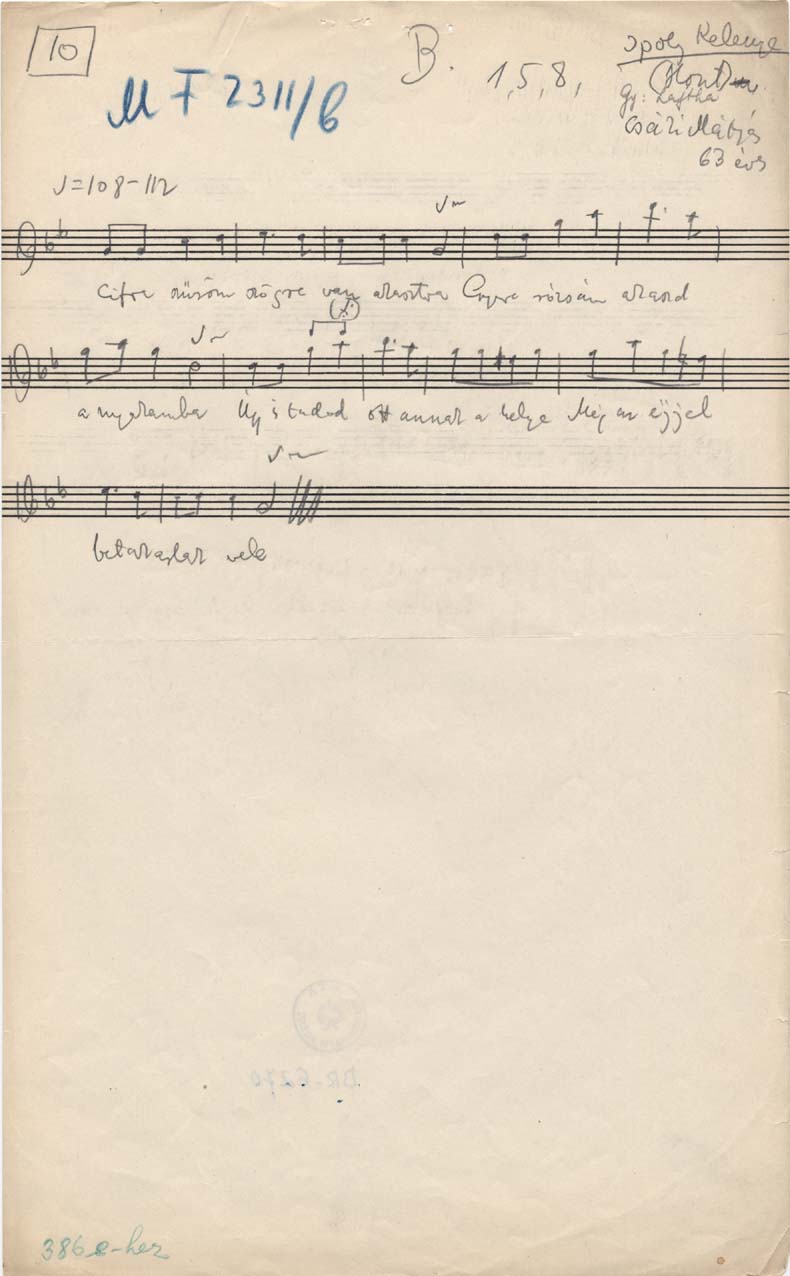 10
B. 1, 5, 8,
Ipoly Kelenye
(Hont)
M F 2311/b
Gy: Lajtha
Csáki Mátyás
63 éves
♩=108-112
Cifra szűröm szögre van akasztva Gyere rózsám akaszd
a nyakamba Úgy is tudod ott annak a helye Még az éjjel
betakarlak vele
BR-6270
386 e-hez